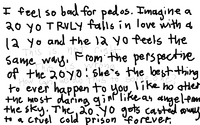 I feel so bad for pedos. Imagine a
20 yo TRULY falls in love with a
12 yo and the 12 yo feels the
same way. From the perspective
of the 20yo: she's the best thing
to ever happen to you like no other
the most daring girl like an angel from
the sky. The 20 yo gets casted away
to a cruel cold prison forever.